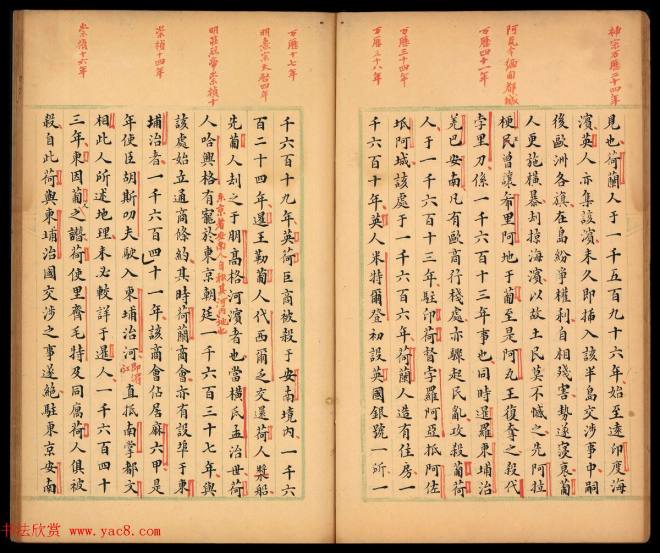 神宗万曆二十四年
阿瓦今緬甸都城
万曆四十一年
万曆三十四年
万曆三十八年
見也荷蘭人于一千五百九十六年始至遠印度海
濱英人亦集該濱未久即插入該半島交涉事中嗣
後歐洲各旗在島紛爭權利自相殘害勢遂寖衰葡
人更施橫暴刦掠海濱以故土民莫不憾之先阿拉
梗民曾讓希里阿地于葡至是阿瓦王復奪之殺代
孛里刀係一千六百十三年事也同時暹羅東埔治
羌巴安南凡有歐商行棧處亦驟起民亂攻殺葡荷
人于一千六百十三年駐印荷督孛羅阿亞抵阿佐
坻阿城該處于一千六百六年荷蘭人造有住房一
千六百十年英人米特爾登初設英國銀號一所一
万曆十七年
明熹宗天啟四年
明莊烈帝崇禎十
崇禎十四年
崇禎十六年
千六百十九年英荷巨商被殺于安南境內一千六
百二十四年暹王勒葡人代西爾乏交還荷人槳船
先葡人刦之于朋高格河濱者也當橫氏孟治世荷
人哈興格有寵於東京朝廷一千六百三十七年與
該處始立通商條約其時荷蘭商會亦有設埠于東
埔治者一千六百四十一年該商會佔居麻六甲是
年使臣胡斯叨夫駛入東埔治河直抵南掌都文
相此人所述地理未必較詳于暹人一千六百四十
三年東因葡人之譖荷使里齊毛特及同屬荷人俱被
殺自此荷與東埔治國交涉之事遂絕駐東京安南
书法欣赏 www.yac8.com